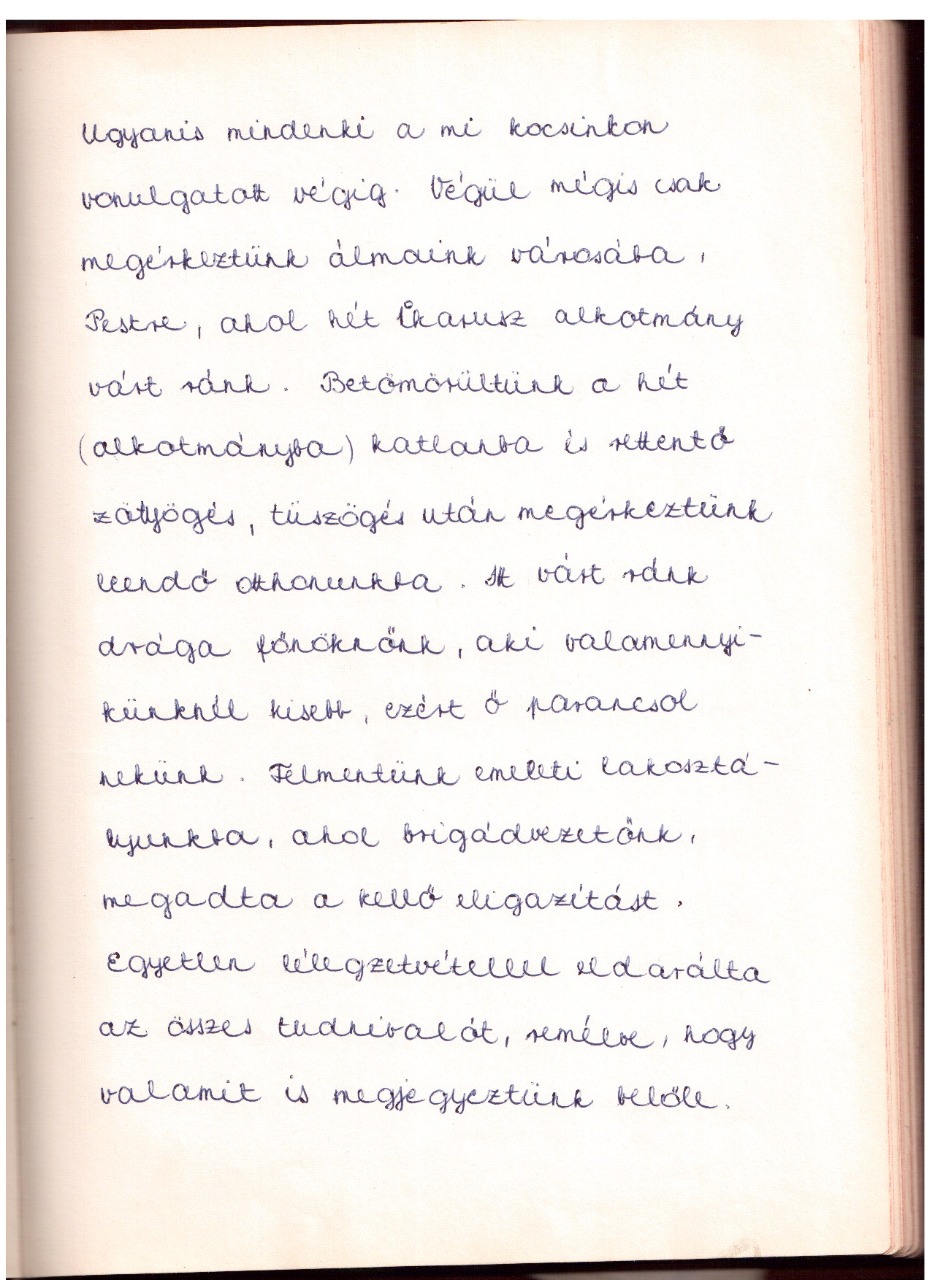 Ugyanis mindenki a mi kocsinkon
vonulgatott végig. Végül mégis csak
megérkeztünk álmaink városába,
Pestre, ahol hét Ikarusz alkotmány
várt ránk. Betömörültünk a hét
(alkotmányba) katlanba és rettentő
zötyögés, tüszögés után megérkeztünk
leendő otthonunkba. Itt várt ránk
drága főnöknőnk, aki valamennyi-
künknél kisebb, ezért ő parancsol
nekünk. Felmentünk emeleti lakosztá-
lyunkba, ahol brigádvezetőnk,
megadta a kellő eligazítást.
Egyetlen lélegzetvétellel eldarálta
az összes tudnivalót, remélve, hogy
valamit is megjegyeztünk belőle.